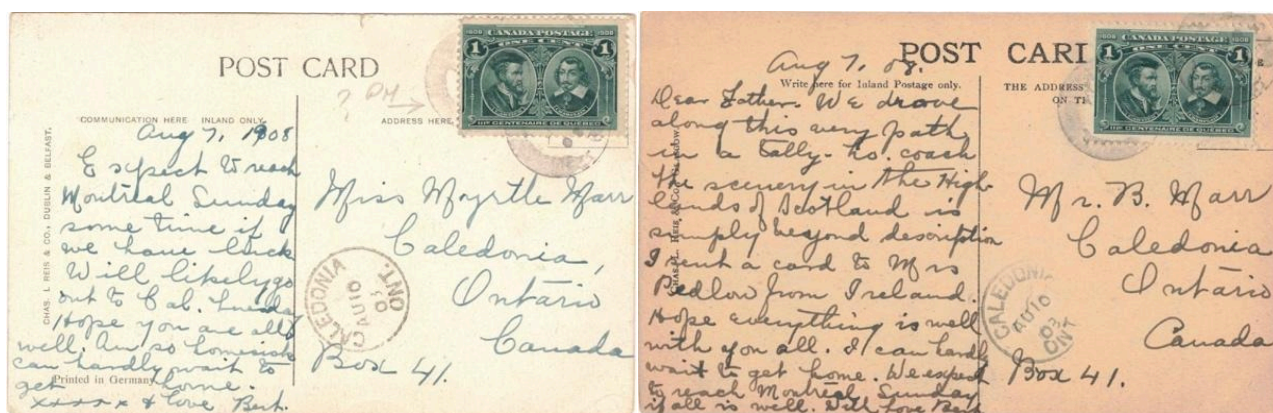 POST CARD
? PM →
COMMUNICATION HERE INLAND ONLY.
ADDRESS HERE
CHAS. L REIS & CO., DUBLIN & BELFAST.
1608 CANADA POSTAGE 1908
1 ONE CENT 1
IIIe CENTENAIRE DE QUEBEC
Aug 7, 1908
Expect to reach
Montreal Sunday
some time if
we have luck
Will likely go
out to Cal. Tuesday
Hope you are all
well. Am so homesick
can hardly wait to
get home.
xxxxx & love Bert.
Printed in Germany
Miss Myrtle Marr
Caledonia,
Ontario
Canada
Box 41.
CALEDONIA ONT.
AU 10
08
POST CAR
Write here for Inland Postage only.
THE ADDRESS
ON T
1608 CANADA POSTAGE 1908
1 ONE CENT 1
IIIe CENTENAIRE DE QUEBEC
Aug 7, 08.
Dear Father. We drove
along this very path
in a tally-ho. coach
The scenery in the High-
lands of Scotland is
simply beyond description
I sent a card to Mrs
Pedlow from Ireland.
Hope everything is well
with you all. I can hardly
wait to get home. We expect
to reach Montreal Sunday
if all is well. With love Bert
Mr. B. Marr
Caledonia
Ontario
Canada
Box 41.
CALEDONIA ONT
AU 10
08